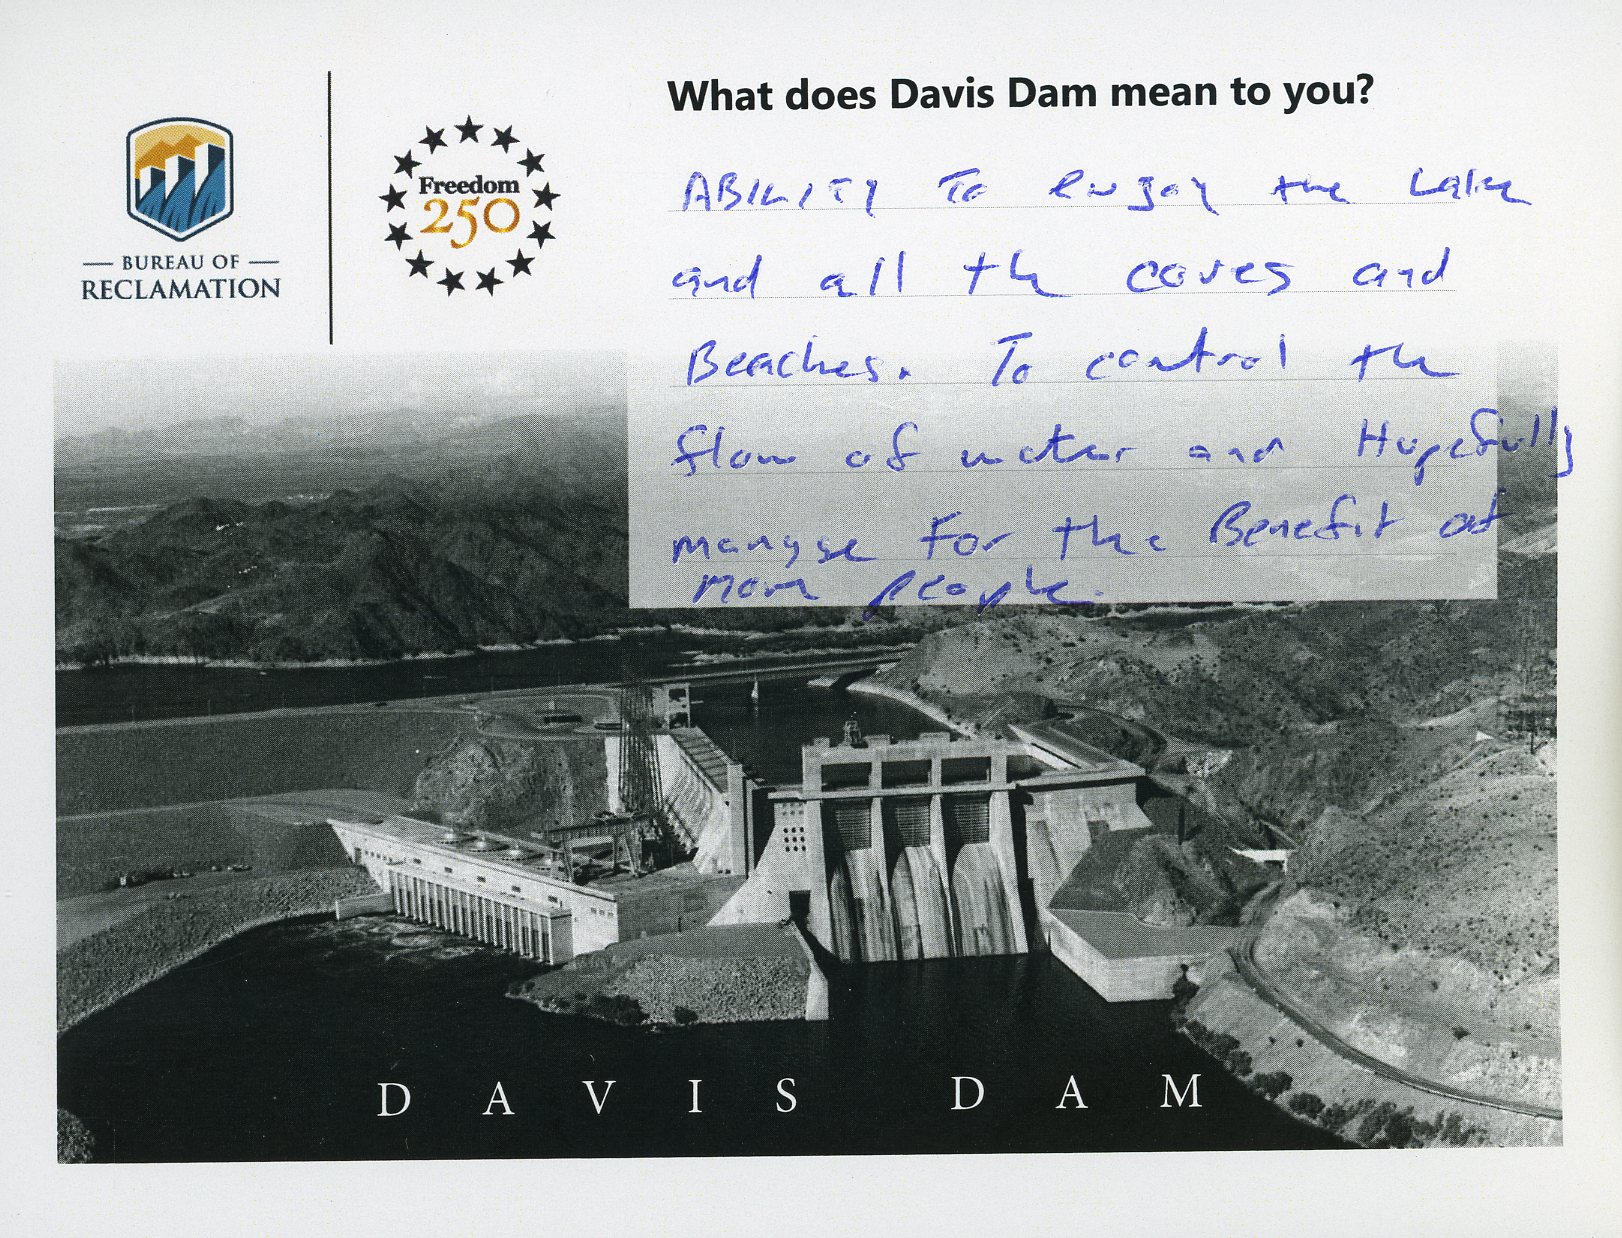 What does Davis Dam mean to you?
Freedom
250
BUREAU OF
RECLAMATION
ABILITY To enjoy the Lake
and all the coves and
Beaches. To control the
flow of water and Hopefully
manage For the Benefit of
more people.
DAVIS DAM